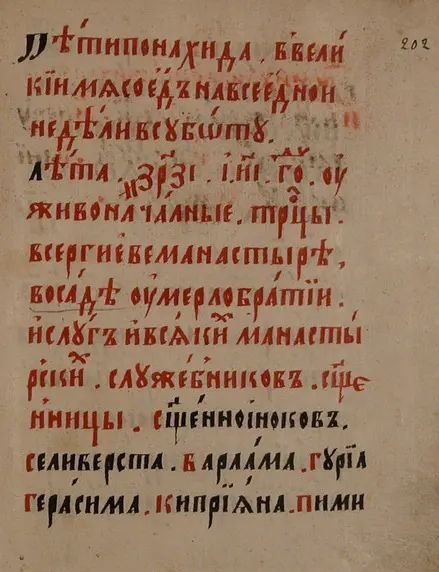 Пѣти понахида, в вели
202
кїи мясоедъ на всеедной
недѣли в субѡту.
Лѣта ҂зр҃зі и҃і го. оу
живоначалные. трⷪ҇цы.
в сергиеве манастырѣ,
во осадѣ оумерло братїи.
и слугъ и всякиⷯ манасты
рскиⷯ. служебниковъ. сщ҃е
нницы. сщ҃енноіноковъ.
селиверста. варлаама. гурїа
герасима. кипрїяна. пими